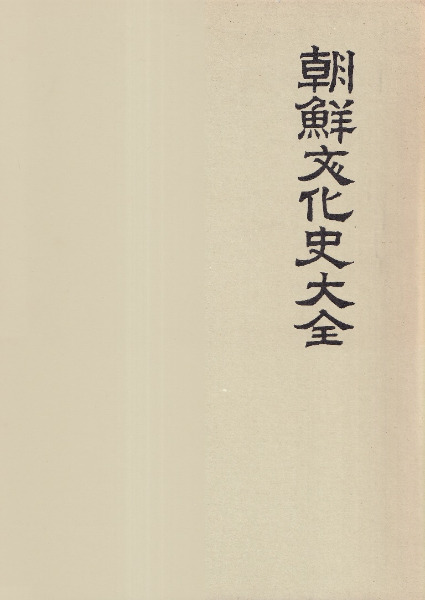 朝鮮文化史大全